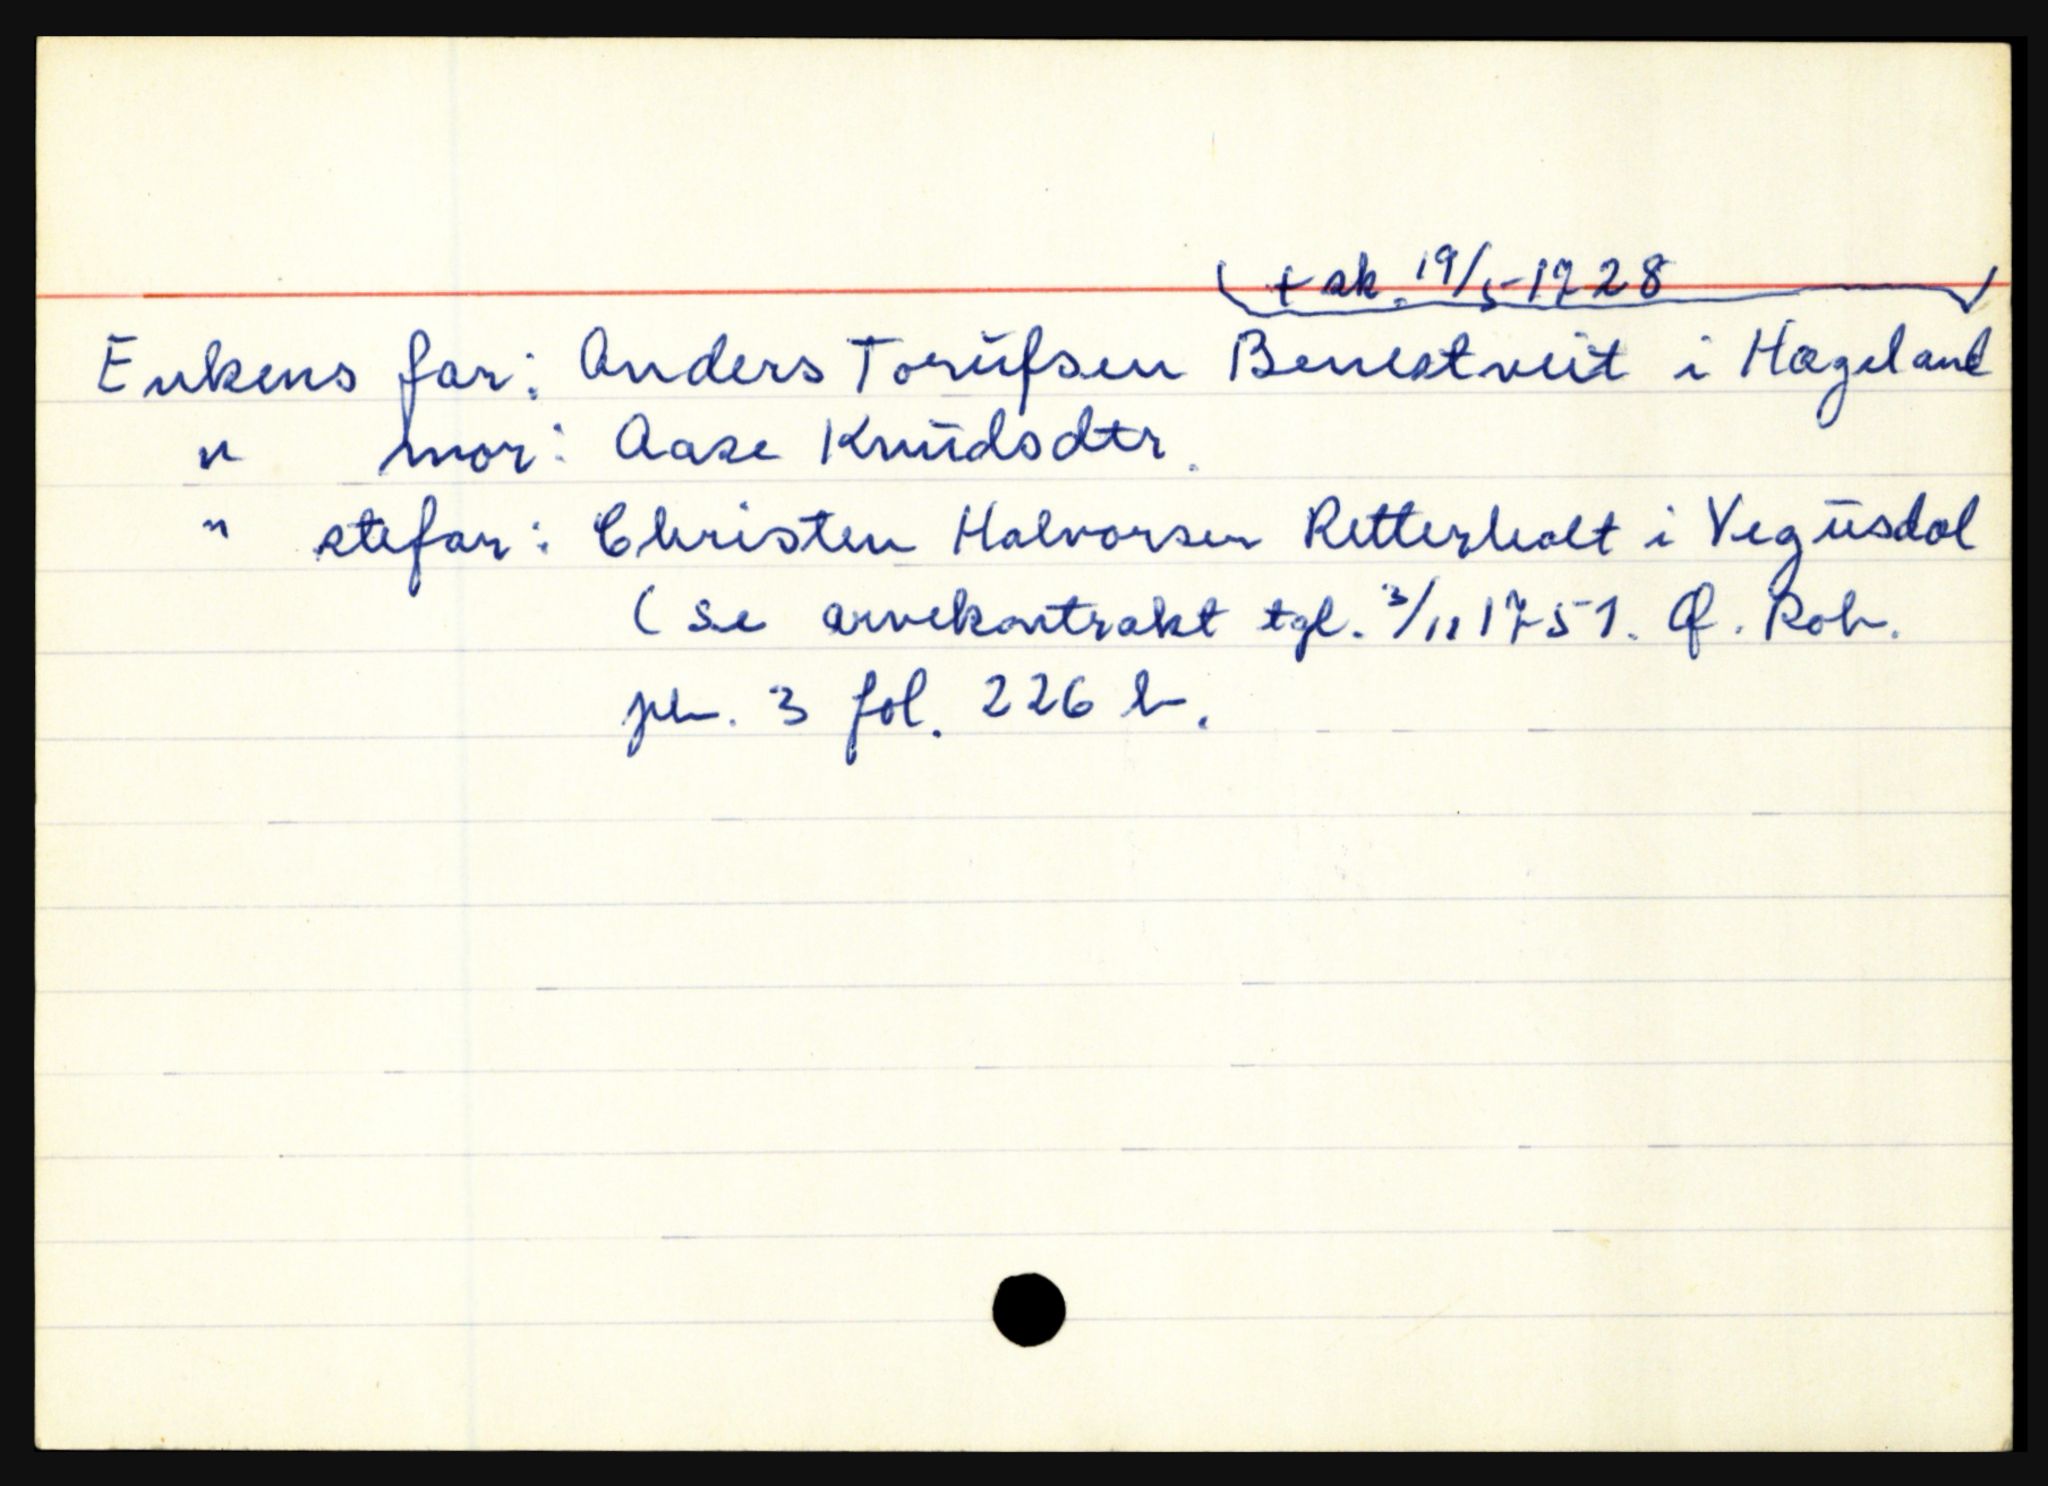 + sk. 19/5-1728
Enkens far: Anders Torúfsen Benestveit i Hægeland
" mor: Aase Knúdsdtr.
" stefar: Christen Halvorsen Retterholt i Vegúsdal
(se arvekontrakt tgl. 3/11 1751. Q. Rob.
pb. 3 fol. 226 b.